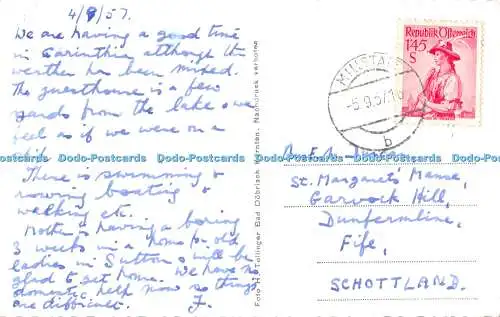 4/9/57.
We are having a good time
in Carinthia although the
weather has been mixed.
The guesthouse is a few
yards from the lake & we
feel as if we were on a
There is swimming &
rowing boating &
walking etc.
Mother is having a boring
3 weeks in a home for old
ladies in Sutton & will be
glad to get home. We have no
domestic help now so things
are difficult. J.
Foto H. Tollinger Bad Döbriach Kärnten. Nachdruck verboten
Republik Österreich
1'45
S
MILLSTATT
-5.9.57.16
b
St. Margaret's Manse,
Garvock Hill,
Dunfermline,
Fife,
SCHOTTLAND.
Dodo-Postcards Dodo-Postcards Dodo-Postcards Dodo-Postcards Dodo-Postcards Dodo-Postcards